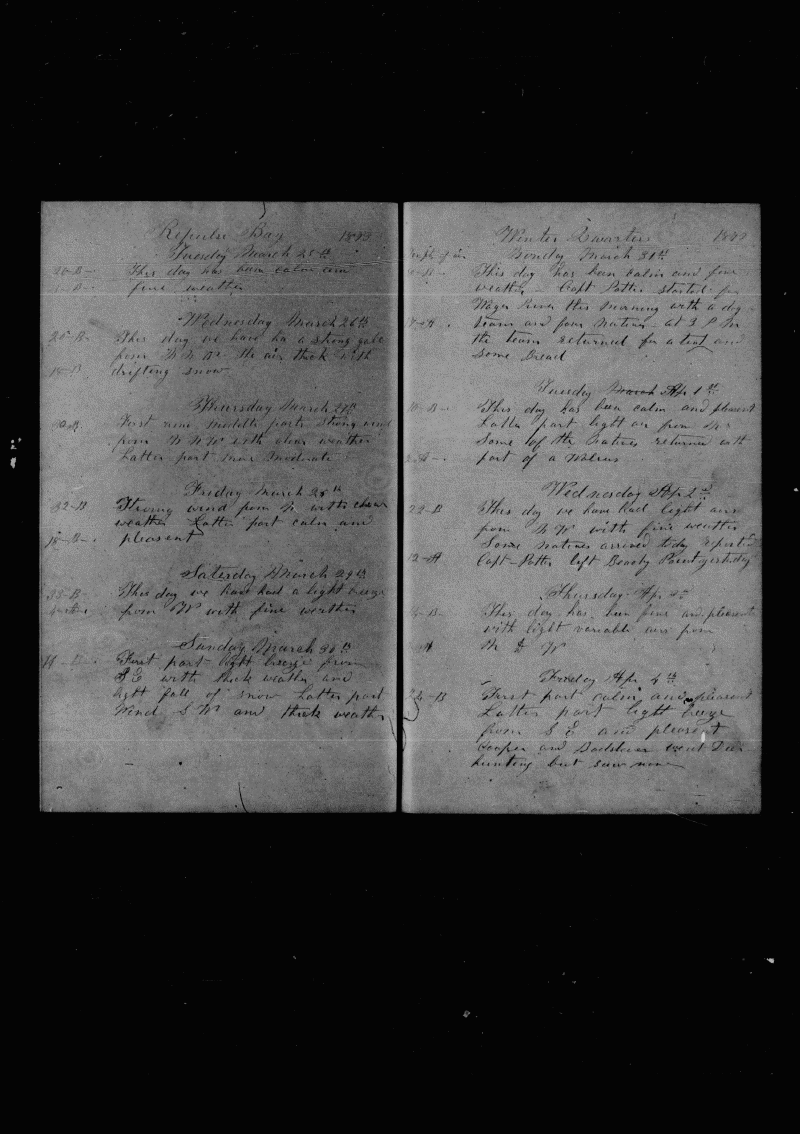 Repulse Bay 1879
Tuesday March 25th
20-B- This day has been calm and
fine weather
Wednesday March 26th
25-B- This day we have ha a strong gale
from N N W the air thick with
18-B drifting snow
Thursday March 27th
First and Middle parts strong wind
from N N W with clear weather
Latter part more moderate
Friday March 28th
32-B Strong wind from N with clear
weather Latter part calm and
18-B- pleasent
Saturday March 29th
33-B- This day we have had a light breeze
from W with fine weather
Sunday March 30th
First part light breeze from
S E with thick weather and
light fall of snow Latter part
Wind S W and thick weather
Winter Quarters 1879
Monday March 31st
This day has been calm and fine
weather - Capt Potter started for
Wager River this morning with a dog
team and four natives - at 3 P M
the team returned for a tent and
some Bread
Tuesday March Apr 1st
This day has been calm and pleasent
Latter part light air from
Some of the Natives returned with
part of a Walrus
Wednesday Apr 2nd
22-B This day we have had light airs
from N W with fine weather
Some natives arrived today report
12-A Capt Potter left Beachy Point yesterday
Thursday Apr
This day has been fine and pleasent
with light variable airs from
N & W
Friday Apr 4th
24-B First part calm and pleasent
Latter part light breeze
from S E and pleasent
Cooper and went Deer
hunting but saw none